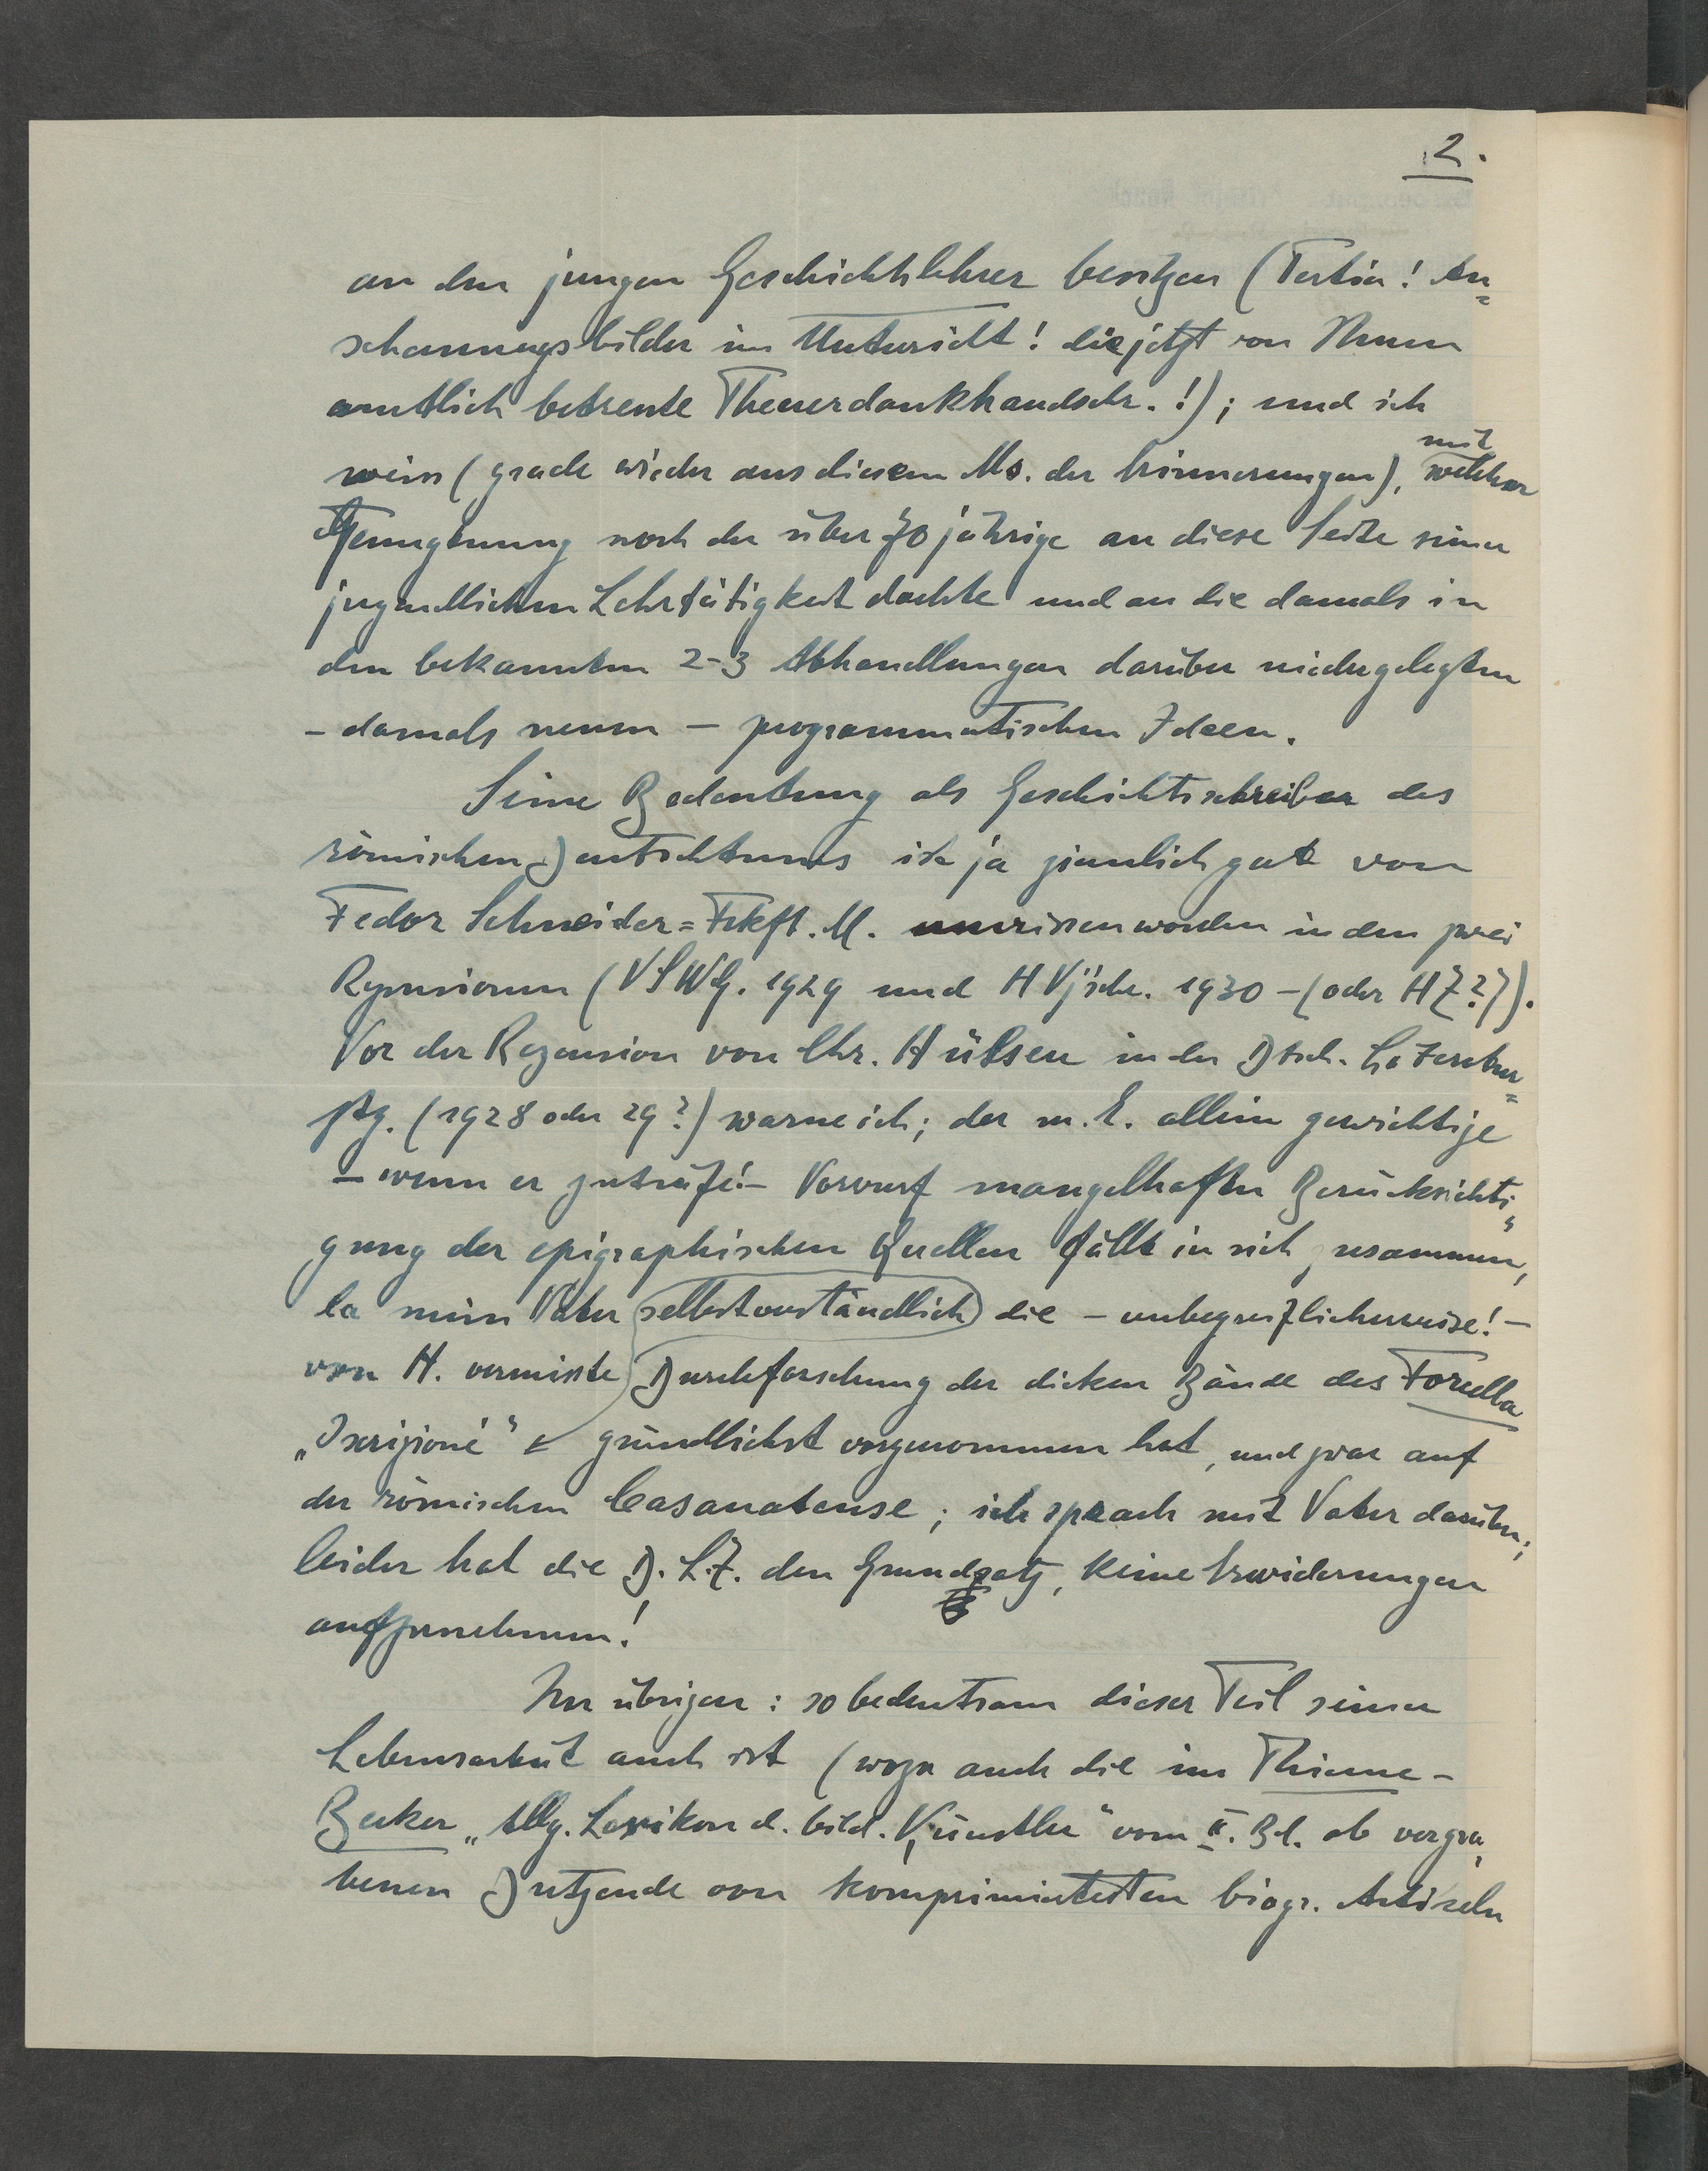 2.
an den jungen Geschichtslehrer besitzen (Tertia! An=
schauungsbilder im Unterricht! die jetzt von Ihnen
amtlich betreute Theuerdankhandschr.!); und ich
weiss (grade wieder aus diesem Ms. der Erinnerungen),
mit
welcher
Genugtuung noch der über 70 jährige an diese Seite seiner
jugendlichen Lehrtätigkeit dachte und an die damals in
den bekannten 2-3 Abhandlungen darüber niedergelegten
- damals neuen - programmatischen Ideen.
Seine Bedeutung als Geschichtsschreiber des
römischen Deutschtums ist ja ziemlich gut von
Fedor Schneider=Frkft. M. umrissen worden in den zwei
Rezensionen (VSWG. 1929 und HVjschr. 1930 - (oder HZ?)).
Vor der Rezension von Chr. Hülsen in der Dtsch. Literatur=
ztg. (1928 oder 29?) warne ich; der m. E. allein gewichtige
- wenn er zuträfe! - Vorwurf mangelhafter Berücksichti=
gung der epigraphischen Quellen fällt in sich zusammen,
da mein Vater selbstverständlich die - unbegreiflicherweise! -
von H. vermisste Durchforschung der dicken Bände des Forcella
„Iscrizioni" gründlichst vorgenommen hat, und zwar auf
der römischen Casanatense; ich sprach mit Vater darüber;
leider hat die D. L. Z. den Grundsatz, keine Erwiderungen
aufzunehmen!
Im übrigen: so bedeutsam dieser Teil seiner
Lebensarbeit auch ist (wozu auch die im Thieme-
Becker „Allg. Lexikon d. bild. Künstler" vom II. Bd. ab vergra=
benen Dutzende von komprimiertesten biogr. Artikeln